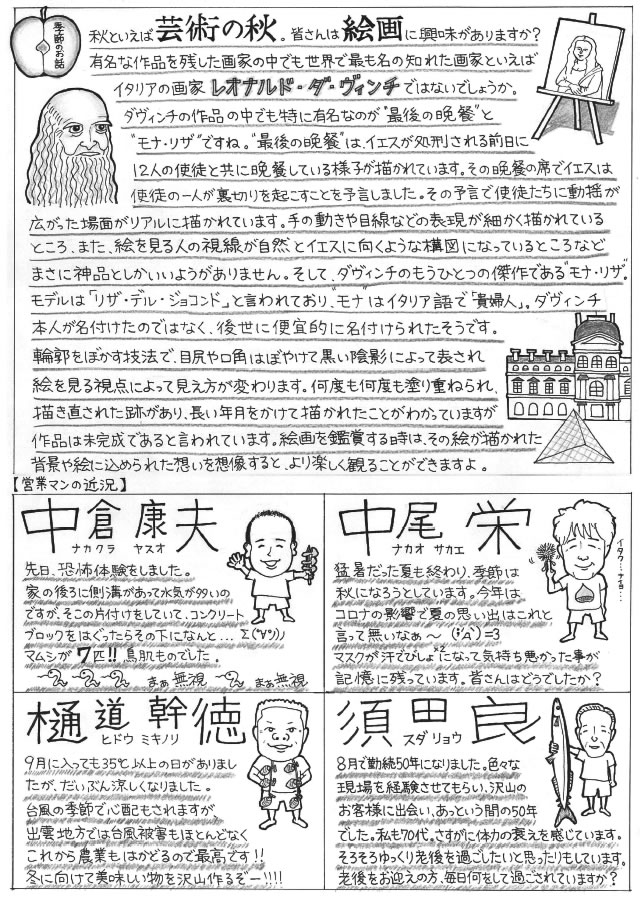 季節のお話
秋といえば芸術の秋。皆さんは絵画に興味がありますか？
有名な作品を残した画家の中でも世界で最も名の知れた画家といえば
イタリアの画家レオナルド・ダ・ヴィンチではないでしょうか。
ダヴィンチの作品の中でも特に有名なのが"最後の晩餐"と
"モナ・リザ"ですね。"最後の晩餐"は、イエスが処刑される前日に
12人の使徒と共に晩餐している様子が描かれています。その晩餐の席でイエスは
使徒の一人が裏切りを起こすことを予言しました。その予言で使徒たちに動揺が
広がった場面がリアルに描かれています。手の動きや目線などの表現が細かく描かれている
ところ、また、絵を見る人の視線が自然とイエスに向くような構図になっているところなど
まさに神品としかいいようがありません。そして、ダヴィンチのもうひとつの傑作である"モナ・リザ"。
モデルは「リザ・デル・ジョコンド」と言われており、"モナ"はイタリア語で「貴婦人」。ダヴィンチ
本人が名付けたのではなく、後世に便宜的に名付けられたそうです。
輪郭をぼかす技法で、目尻や口角はぼやけて黒い陰影によって表され
絵を見る視点によって見え方が変わります。何度も何度も塗り重ねられ、
描き直された跡があり、長い年月をかけて描かれたことがわかっていますが
作品は未完成であると言われています。絵画を鑑賞する時は、その絵が描かれた
背景や絵に込められた想いを想像すると、より楽しく観ることができますよ。
【営業マンの近況】
中倉 康夫
ナカクラ ヤスオ
先日、恐怖体験をしました。
家の後ろに側溝があって水気が多いの
ですが、そこの片付けをしていて、コンクリート
ブロックをはぐったらその下になんと… Σ(°∀°)ﾉ
マムシが7匹!! 鳥肌ものでした。
まぁ無視 まぁ無視
中尾 栄
ナカオ サカエ
イタァ…ナァ…
猛暑だった夏も終わり、季節は
秋になろうとしています。今年は
コロナの影響で夏の思い出はこれと
言って無いなぁ～ (;´Д`)=3
マスクが汗でびしょびしょになって気持ち悪かった事が
記憶に残っています。皆さんはどうでしたか？
樋道 幹徳
ヒドウ ミキノリ
9月に入っても35℃以上の日がありまし
たが、だいぶん涼しくなりました。
台風の季節で心配もされますが、
出雲地方では台風被害もほとんどなく
これから農業もはかどるので最高です!!
冬に向けて美味しい物を沢山作るぞー!!!!
須田 良
スダ リョウ
8月で勤続50年になりました。色々な
現場を経験させてもらい、沢山の
お客様に出会い、あっという間の50年
でした。私も70代。さすがに体力の衰えを感じています。
そろそろゆっくり老後を過ごしたいと思ったりもしています。
老後をお迎えの方、毎日何をして過ごされていますか？